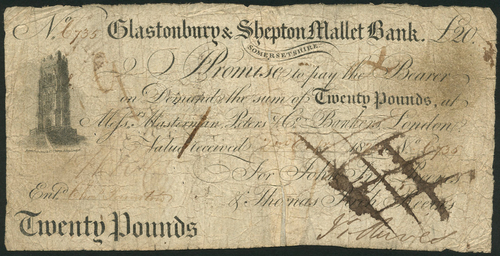 No 2795 Glastonbury & Shepton Mallet Bank. £20
SOMERSETSHIRE
I Promise to pay the Bearer
on Demand the sum of Twenty Pounds, at
Messrs Masterman, Peters & Co. Bankers London
Value received 18
For John
Entd & Thomas Reeves
Twenty Pounds